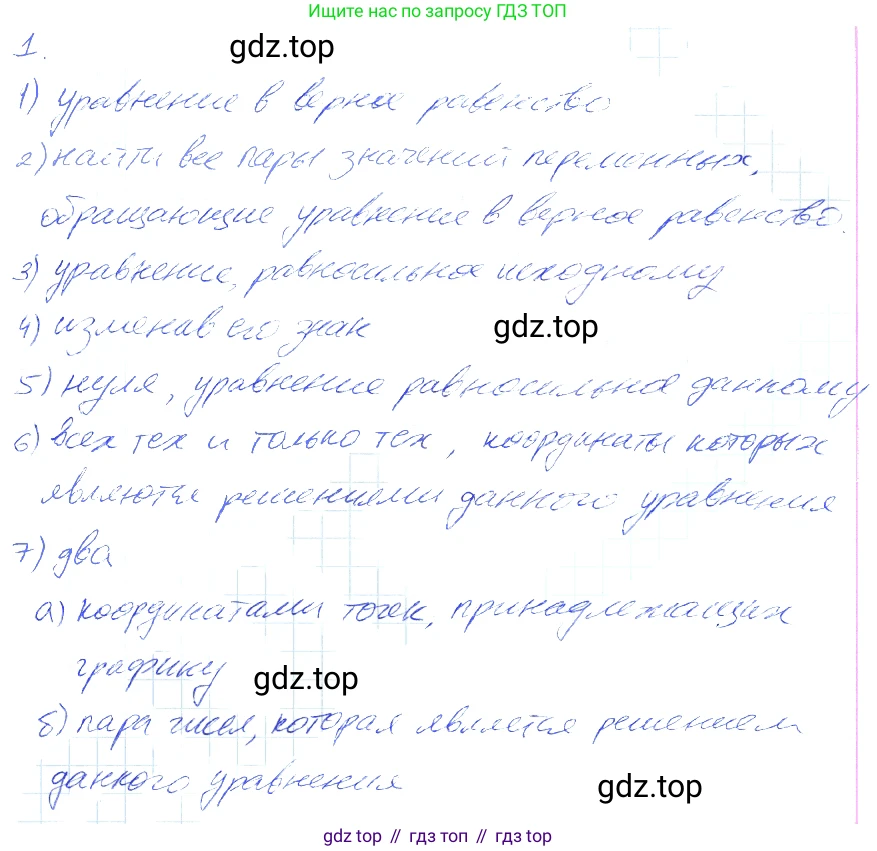 Ищите нас по запросу ГДЗ ТОП
1. gdz.top
1) уравнение в верное равенство
2) найти все пары значений переменных,
обращающие уравнение в верное равенство.
3) уравнение, равносильное исходному
4) изменав его знак gdz.top
5) нуля, уравнение равносильное данному
6) всех тех и только тех, координаты которых
являются решениями данного уравнения
7) два
а) координатами точек, принадлежащих
графику gdz.top
б) пара чисел, которая является решением
данного уравнения gdz.top
gdz top // гдз топ // gdz top